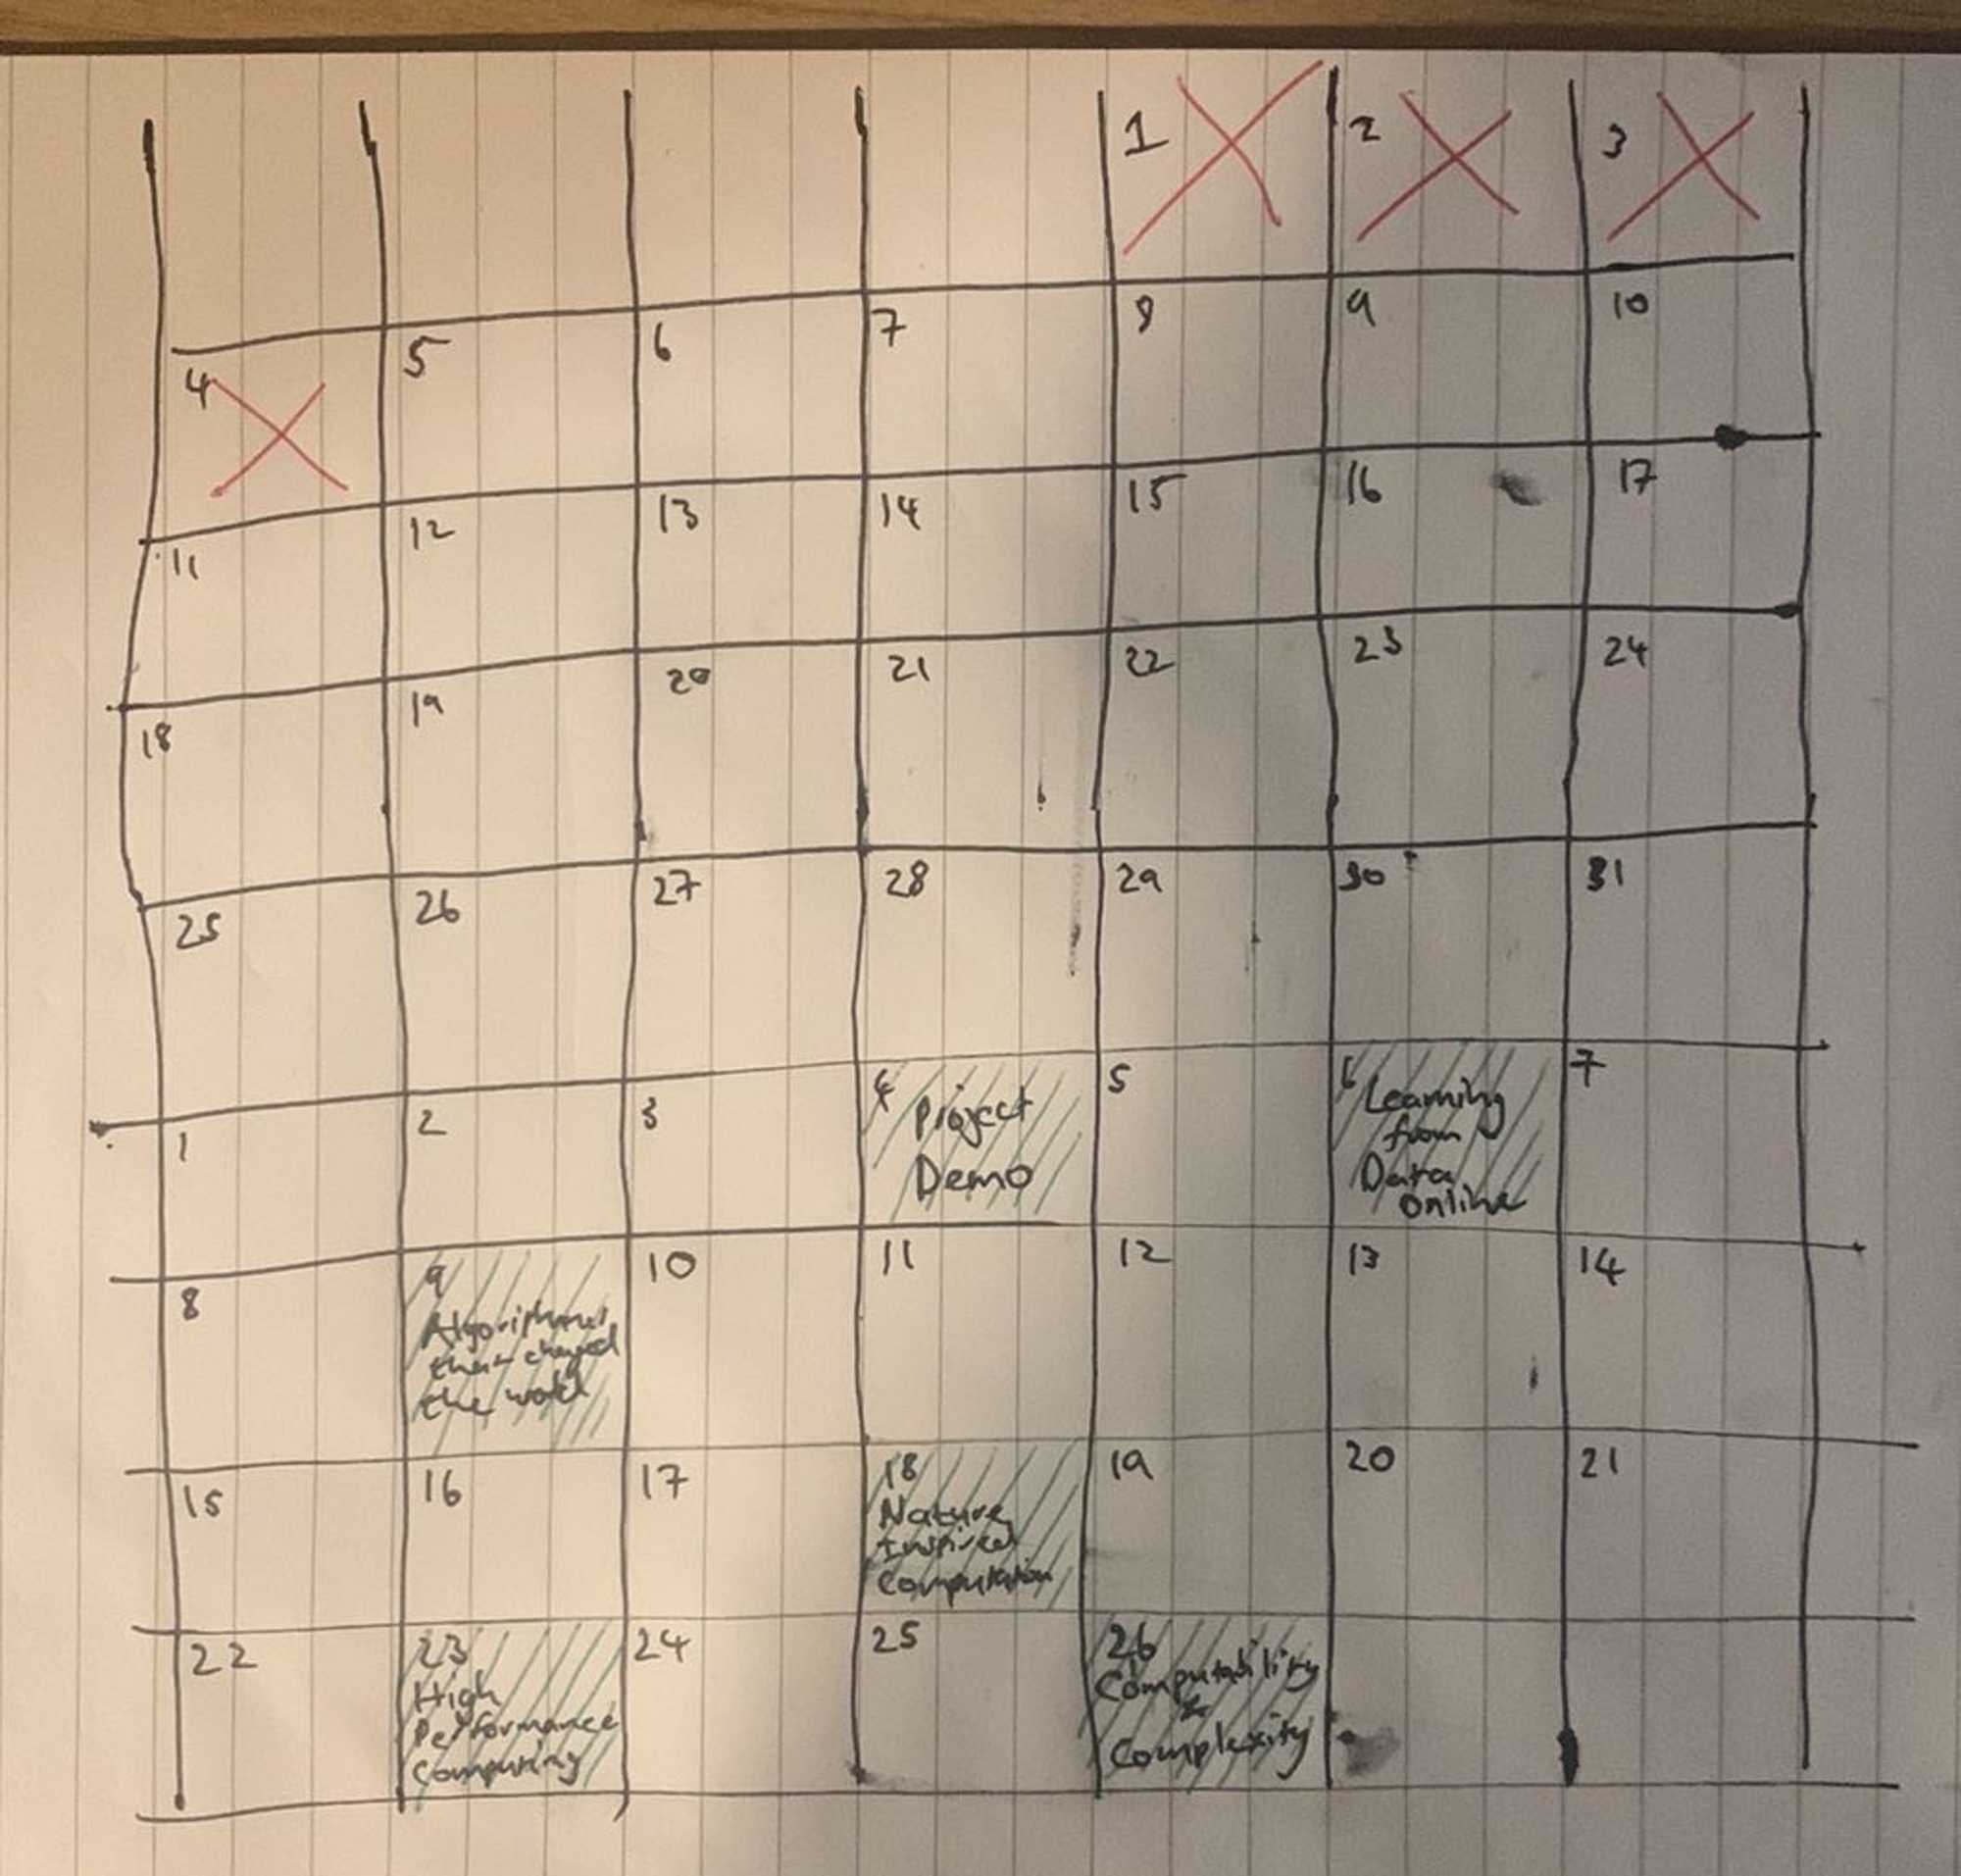 1 2 3
4 5 6 7 8 9 10
11 12 13 14 15 16 17
18 19 20 21 22 23 24
25 26 27 28 29 30 31
1 2 3 4 5 6 7
Project
Demo
Learning
from
Data
Online
8 9 10 11 12 13 14
Algorithms
that changed
the world
15 16 17 18 19 20 21
Nature
Inspired
Computation
22 23 24 25 26
High
Performance
Computing
Computability
&
Complexity